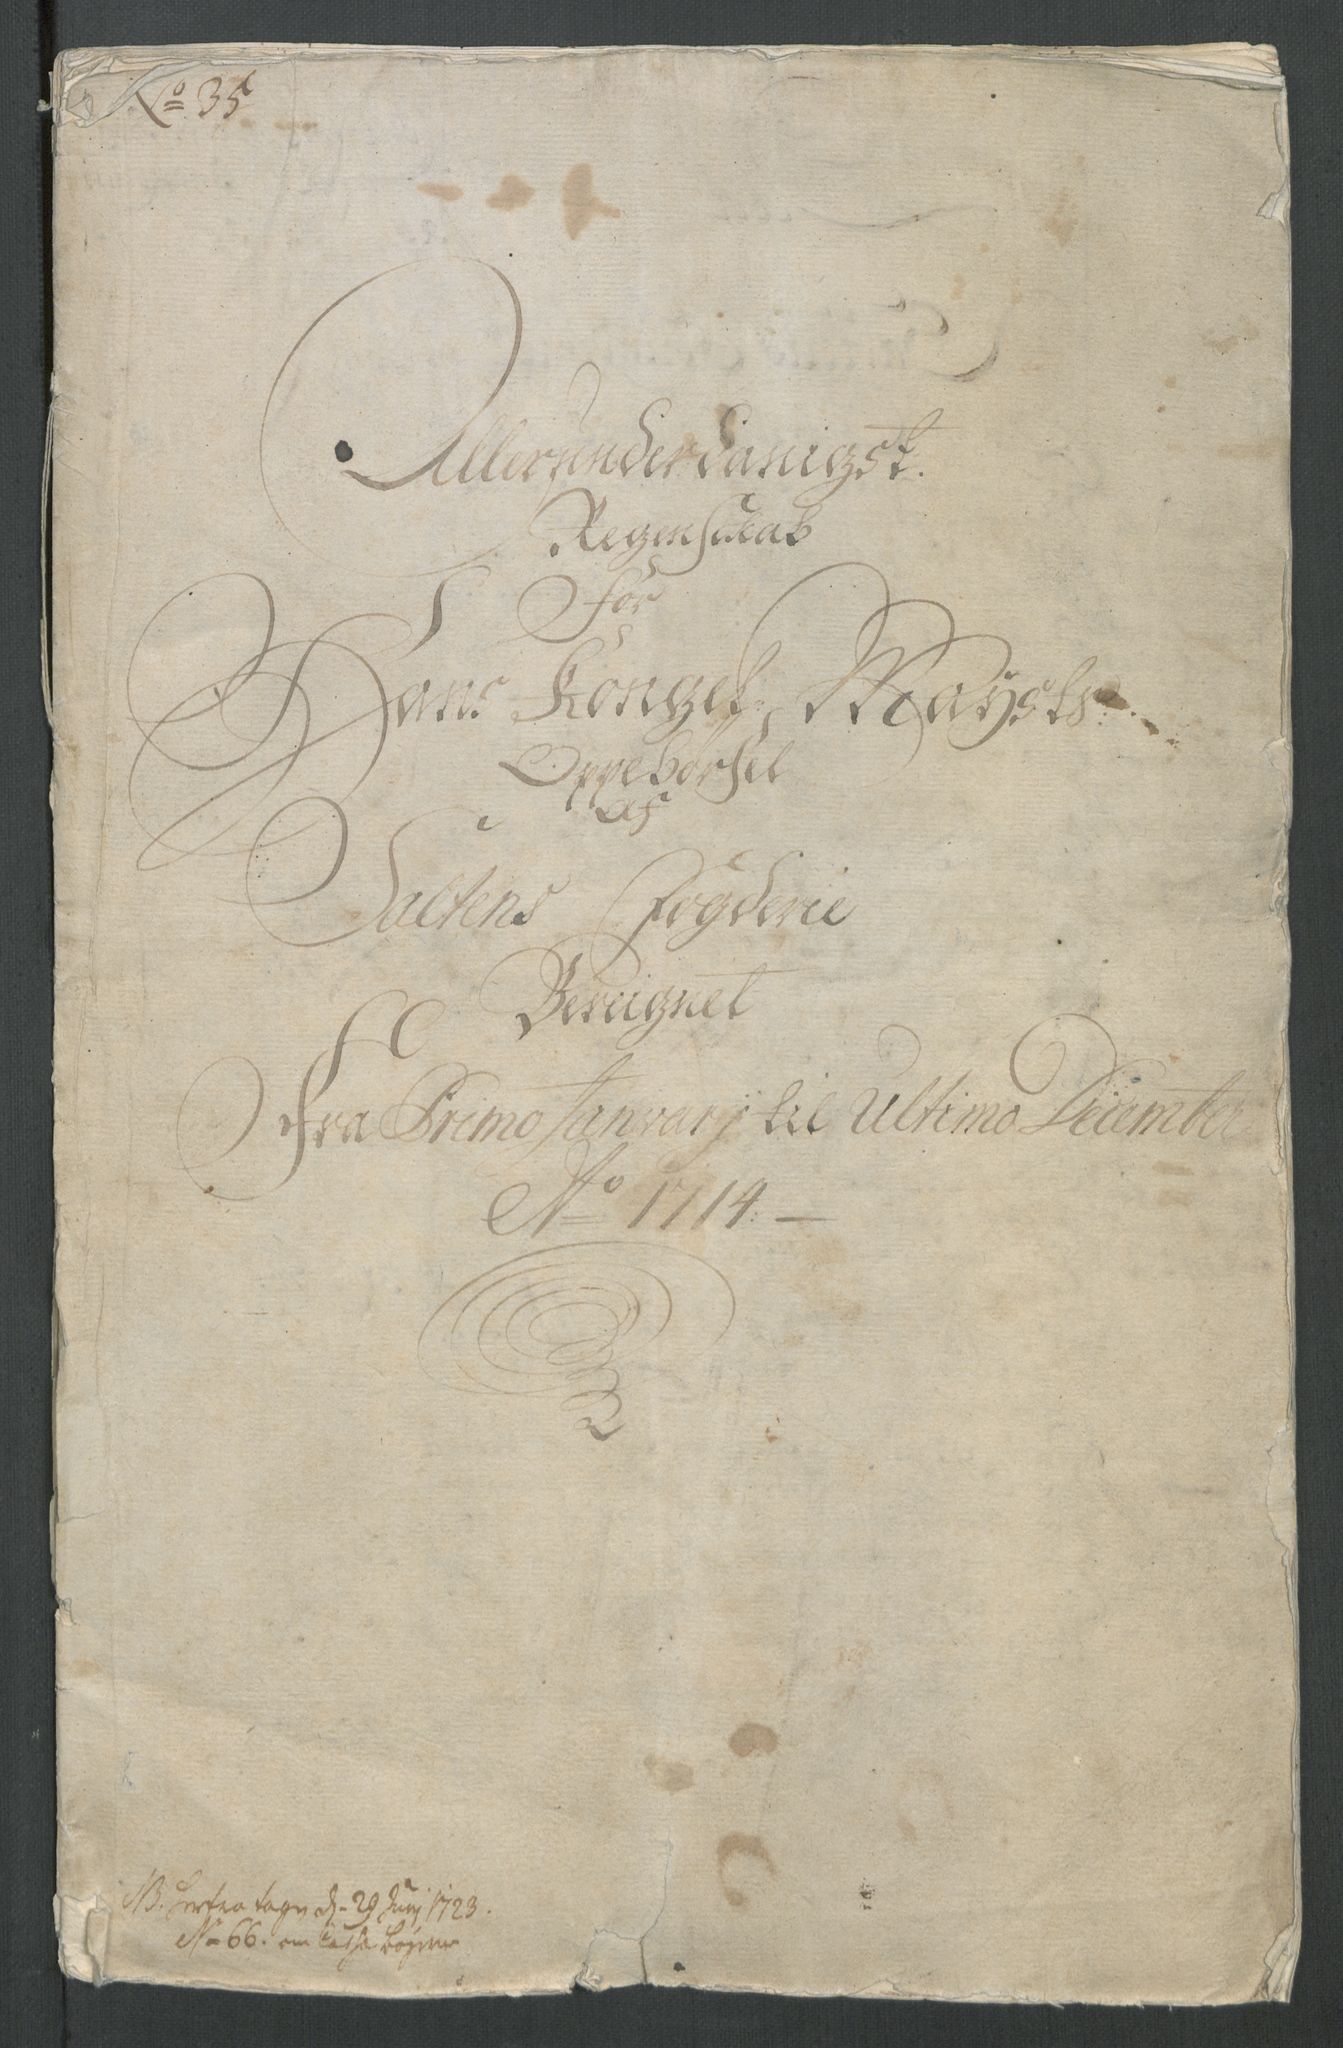 No 35
Allerunderdanigst.
Regenskab
for
Hans Kongel: Maysts:
Oppebørsel
Af
Saltens fogderie
Bereignet
fra Primo Januarij til Ultimo December
Ao 1714:
NB. herfra tagn d- 29 Junj 1723.
No 66. om Cassa Bøgerne